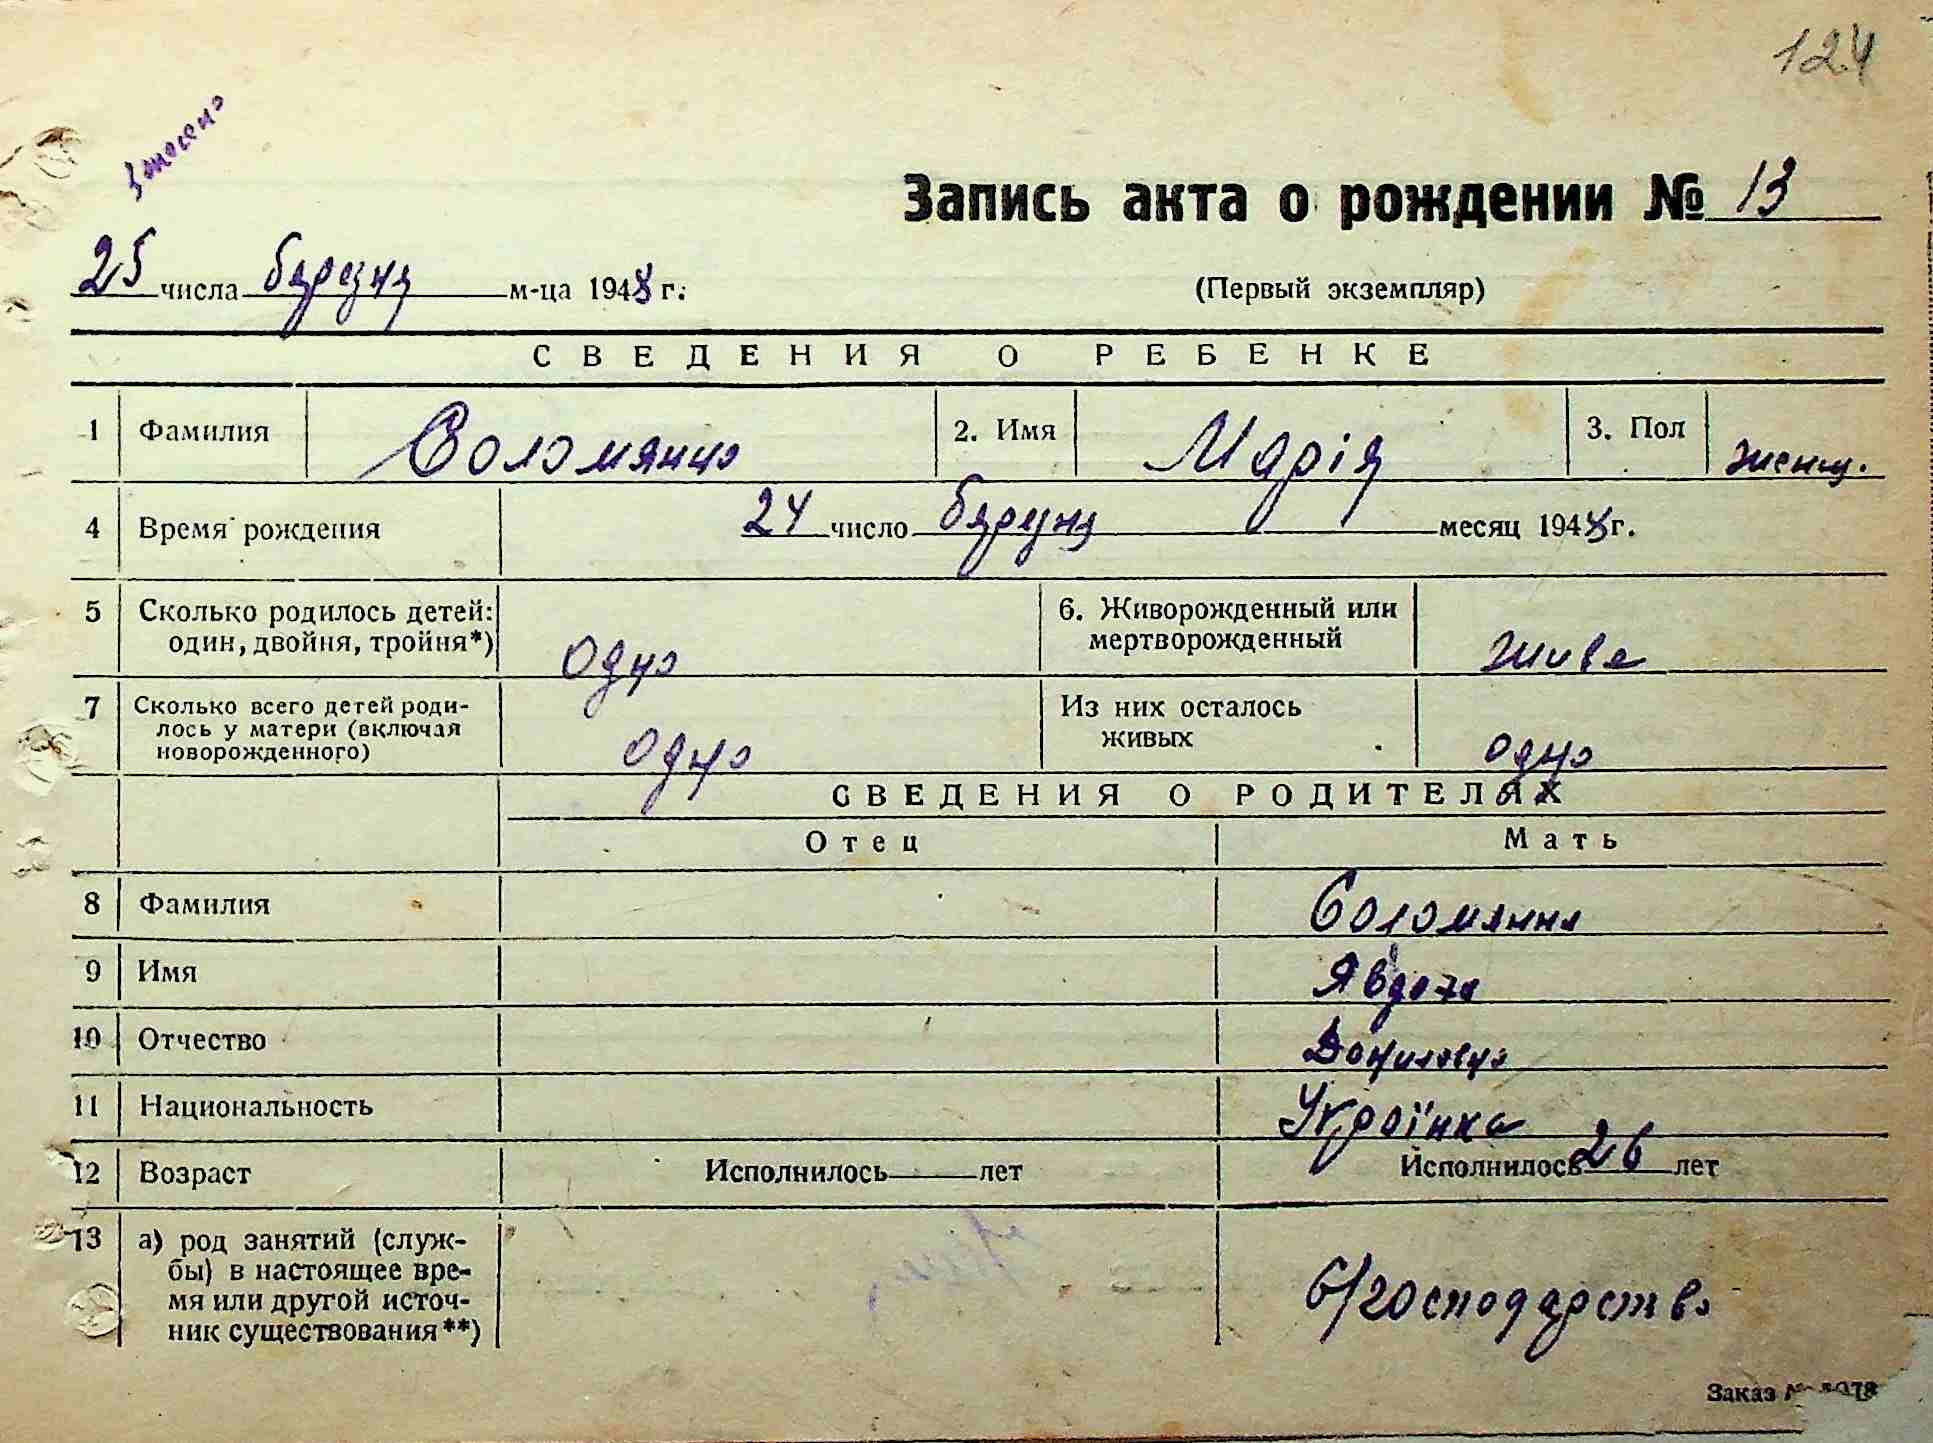 124
Запись акта о рождении № 13
25 числа березня м-ца 1948 г.
(Первый экземпляр)
СВЕДЕНИЯ О РЕБЕНКЕ
1 Фамилия Соломянно 2. Имя Марія 3. Пол женщ.
4 Время рождения 24 число березня месяц 1948 г.
5 Сколько родилось детей: 6. Живорожденный или
один, двойня, тройня*) Одно мертворожденный живе
7 Сколько всего детей роди- Из них осталось
лось у матери (включая живых
новорожденного) одно одно
СВЕДЕНИЯ О РОДИТЕЛЯХ
Отец Мать
8 Фамилия Соломянна
9 Имя Явдоха
10 Отчество Даниловна
11 Национальность Украінка
12 Возраст Исполнилось лет Исполнилось 26 лет
13 а) род занятий (служ-
бы) в настоящее вре-
мя или другой источ- б/господарство
ник существования**)
Заказ №